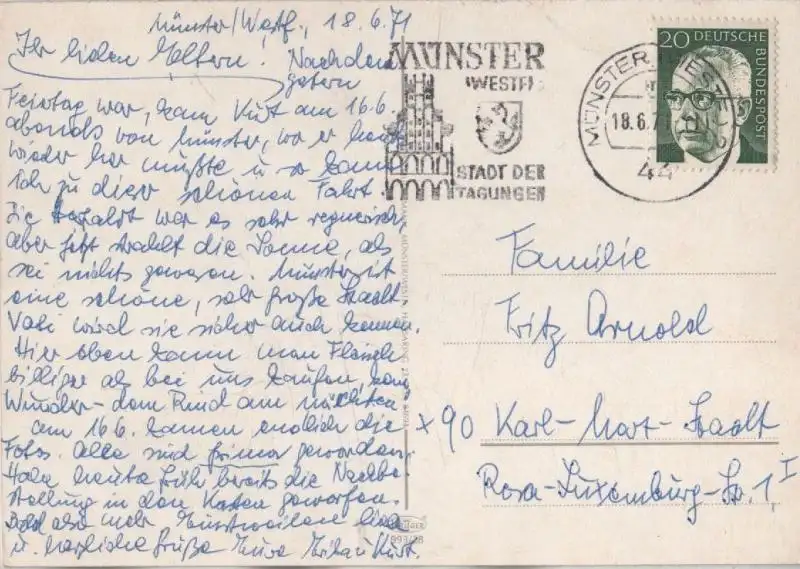 Münster/Westf., 18.6.71
Ihr lieben Eltern! Nachdem
gestern
Feiertag war, kam Kurt am 16.6.
abends von Münster, wo er heute
wieder her mußte u. so kam
ich zu dieser schönen Fahrt.
Die war es sehr regnerisch,
aber jetzt strahlt die Sonne, als
sei nichts gewesen. Münster ist
eine schöne, sehr große Stadt
Vati wird sie sicher auch kennen.
Hier oben kann man Fleisch
billiger als bei uns kaufen, kein
Wunder - dem Rind am nächsten
am 16.6. kamen endlich die
Fotos. Alle sind prima geworden.
Habe heute früh bereits die Nachbe
stellung in den Kasten geworfen.
Bald also mehr, Einstweilen liebe
u. herzliche Grüße Eure Kurt.
MÜNSTER
(WESTF)
STADT DER
TAGUNGEN
MÜNSTER
18.6.71
44
20 DEUTSCHE
BUNDESPOST
Familie
Fritz Arnold
x 90 Karl-Marx-Stadt
Rosa-Luxemburg-Str. 1, I
KRÜGER
993/28